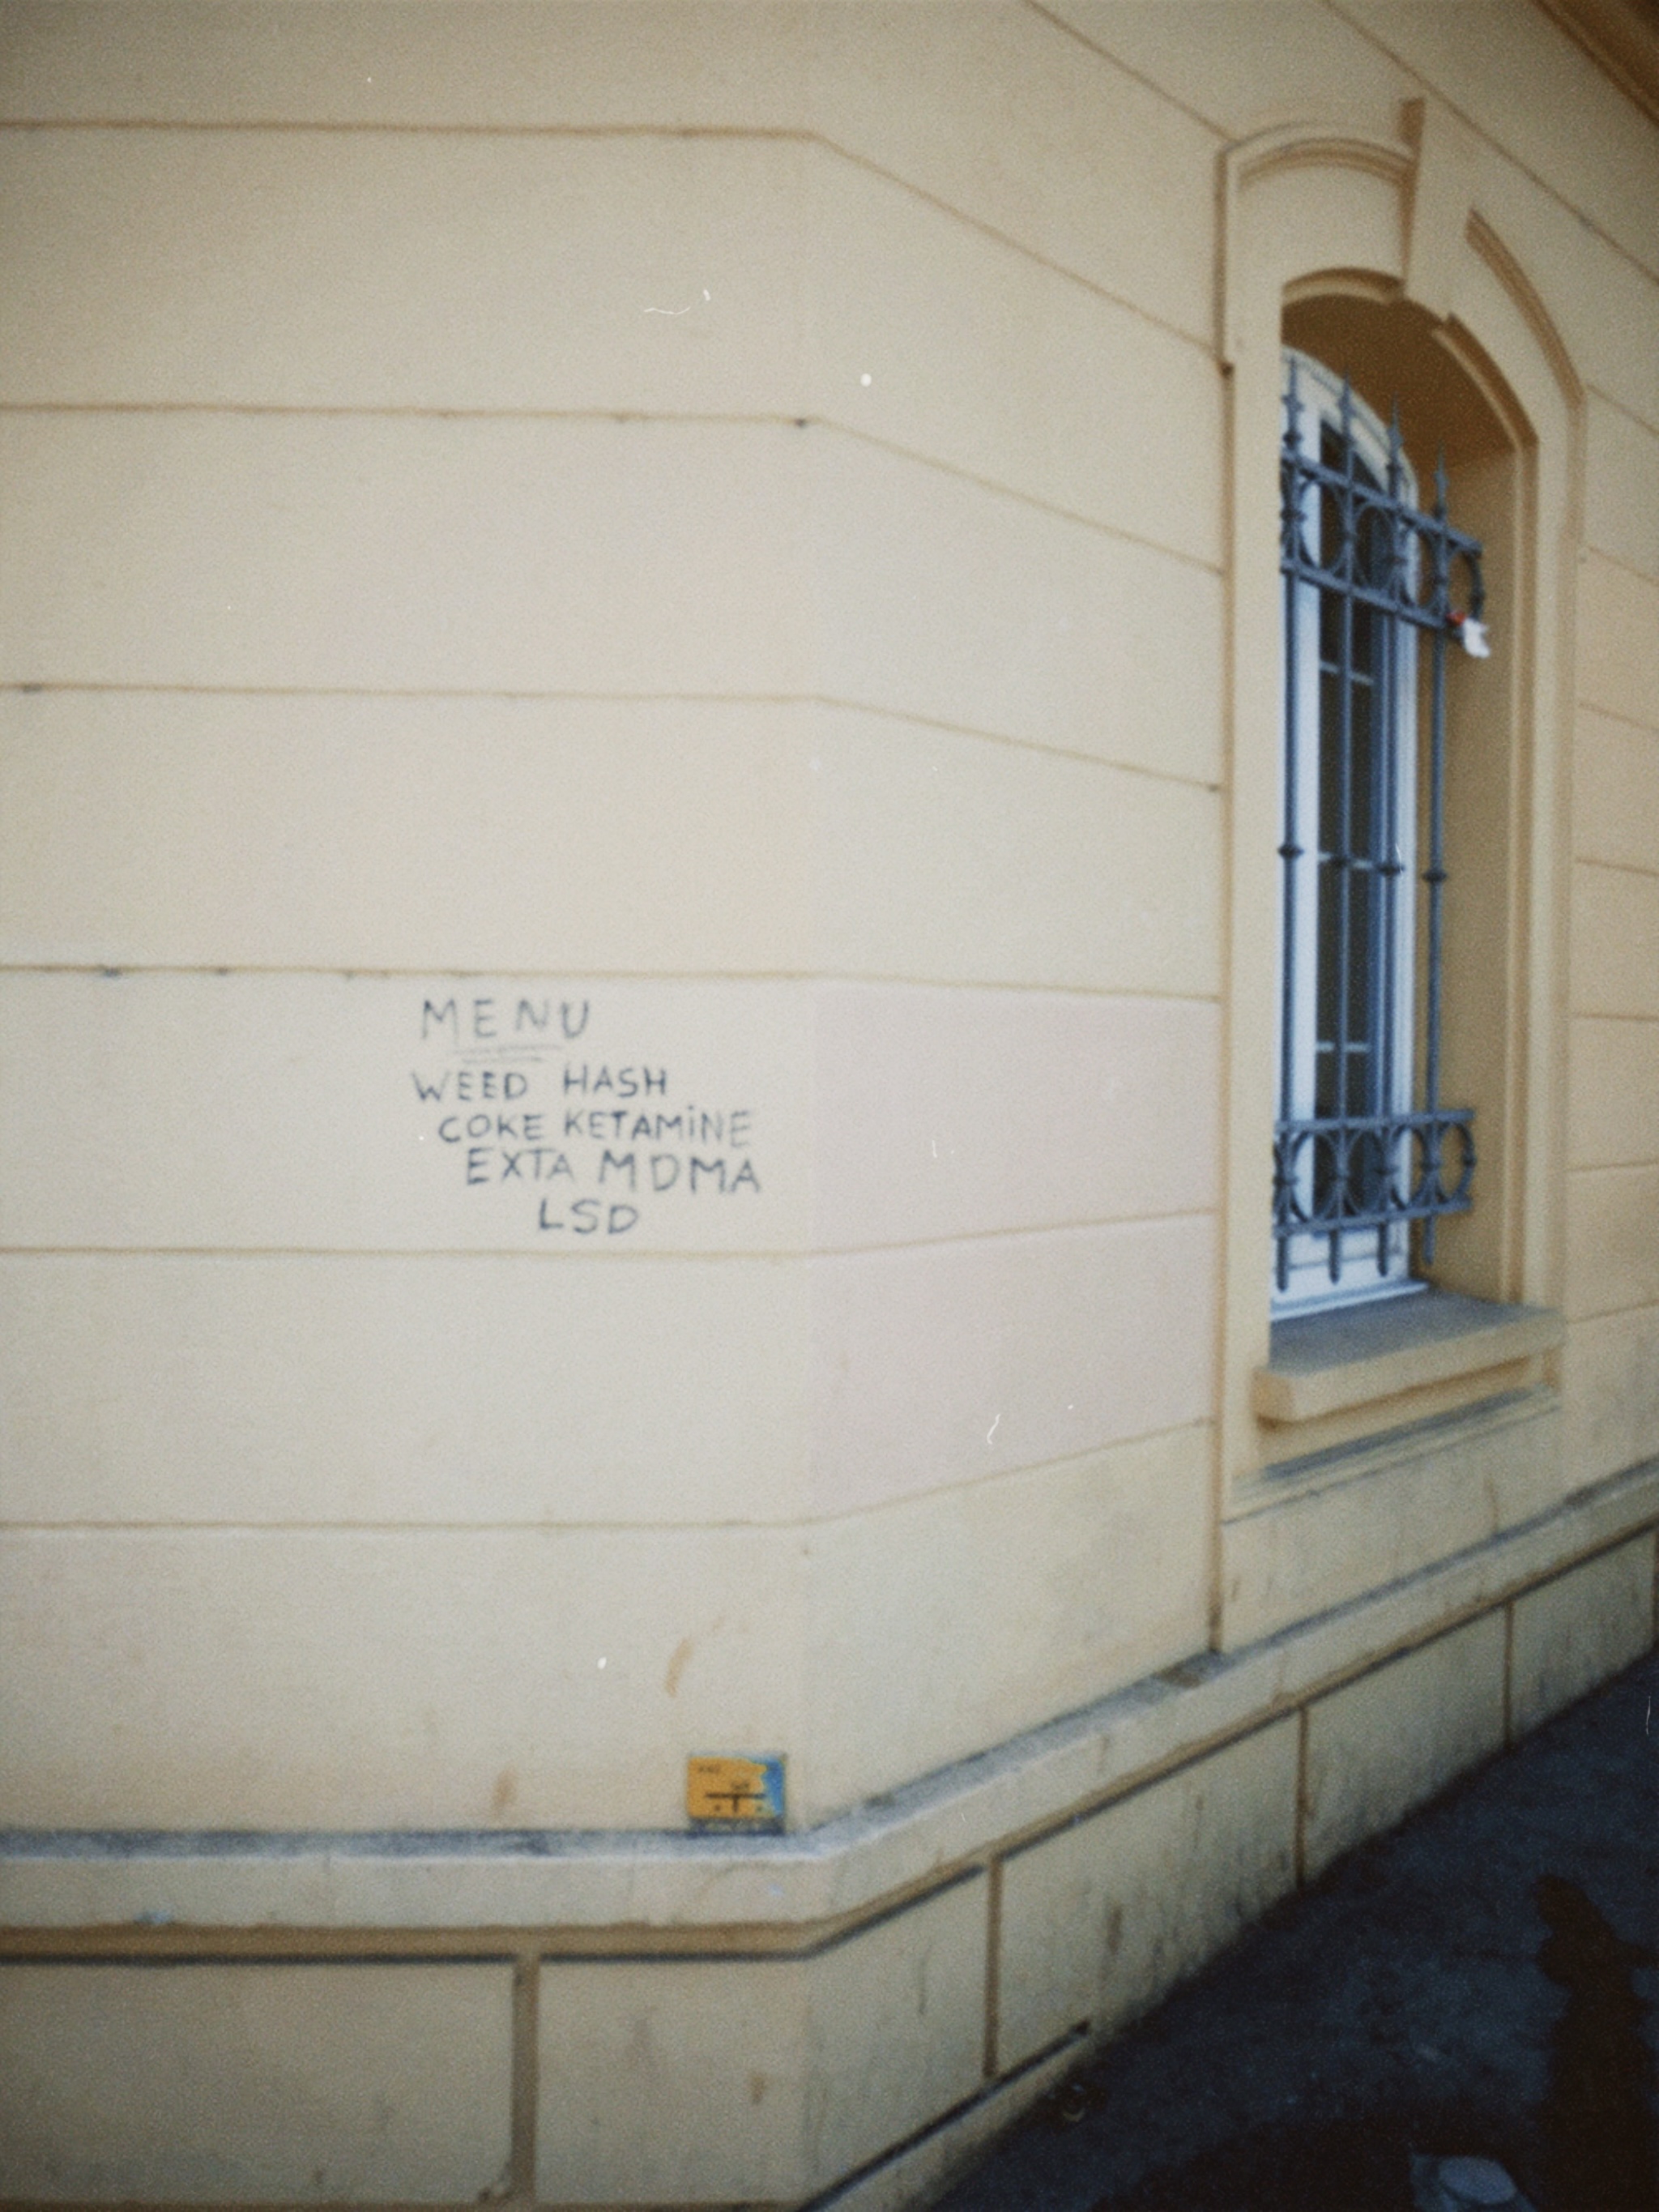 MENU
WEED HASH
COKE KETAMiNE
EXTA MDMA
LSD